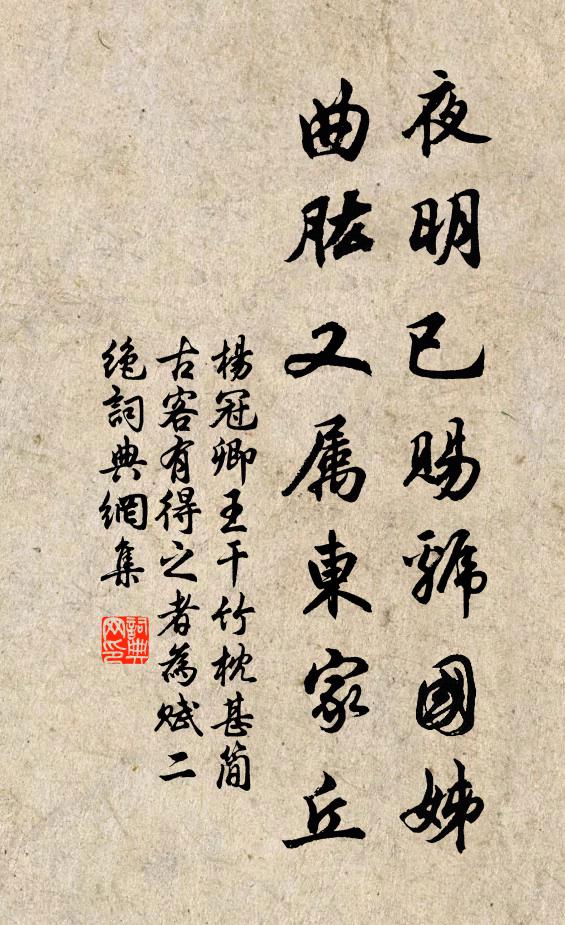 夜明已賜號國姊
曲肱又属東家丘
楊冠卿王干竹枕甚簡
古客有得之者為賦二
絶詞典網集
詞典网印